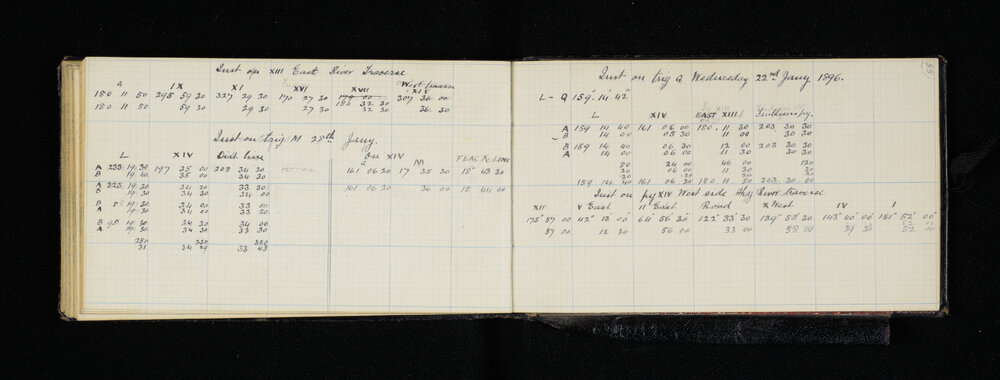 Inst on XIII East River Traverse
G IX XI XVI XVII West traverse XIV
180 11 50 295 59 30 327 29 30 170 27 30 307 36 00
180 11 50 59 30 29 30 27 30 32 30 36 30
Inst on trig M 28th Jany.
L XIV Dist line on XIV M FLAG R. LINE
A 233 19 30 197 35 00 208 34 30 161 06 20 17 35 30 18° 43 30
B 19 40 35 00 34 30
A 325 19 30 34 20 33 20 161 06 20 36 00 18 44 00
B 19 30 34 30 34 00
B 5 19 30 34 00 33 00
A 19 30 34 30 33 20
B 95 19 30 34 30 34 00
A 19 30 34 30 33 30
250 230 380
31 34 29 33 48
35
Inst on trig G Wednesday 22nd Jany 1896.
L - G 159° 14' 42"
L XIV EAST XIII
A 159 14 40 161 06 00 180 11 30 203 30 30
B 14 00 05 30 11 00 30 30
B 159 14 40 06 30 12 00 203 30 30
A 14 00 06 00 11 30 30 30
80 24 00 46 00 120
20 06 00 11 30 30
159 14 40 161 06 20 180 11 50 203 30 50
Inst on peg XIV West side River traverse
XII X East II East Round X West IV I
175° 57' 00 42° 13' 00" 64° 56' 30" 122° 33' 30 139° 58' 30 143° 40' 00" 151° 52' 00"
57 00 12 30 56 00 33 00 58 00 39 30 52 00